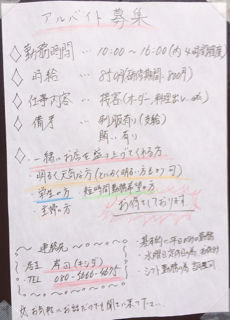 アルバイト募集
◇ 勤務時間 … 10:00～16:00 (内4時間程度)
◇ 時給 … 850円(研修期間 800円)
◇ 仕事内容 … 接客(オーダー、料理出し etc)
◇ 備考 … 制服有り(支給)
賄い有り
◇ 一緒にお店を盛り上げてくれる方
明るく元気な方(とにかく明るい方もOK可)
学生の方 短時間勤務希望の方
主婦の方 お待ちしております
～ 連絡先 ～
店主 岸本(キシダ)
・TEL 080-5660-5675
・基本的に平日の勤務
・水曜日定休日の為 お休み
・シフト勤務の為 応相談
お気軽にお話だけでも聞きに来て下さい。